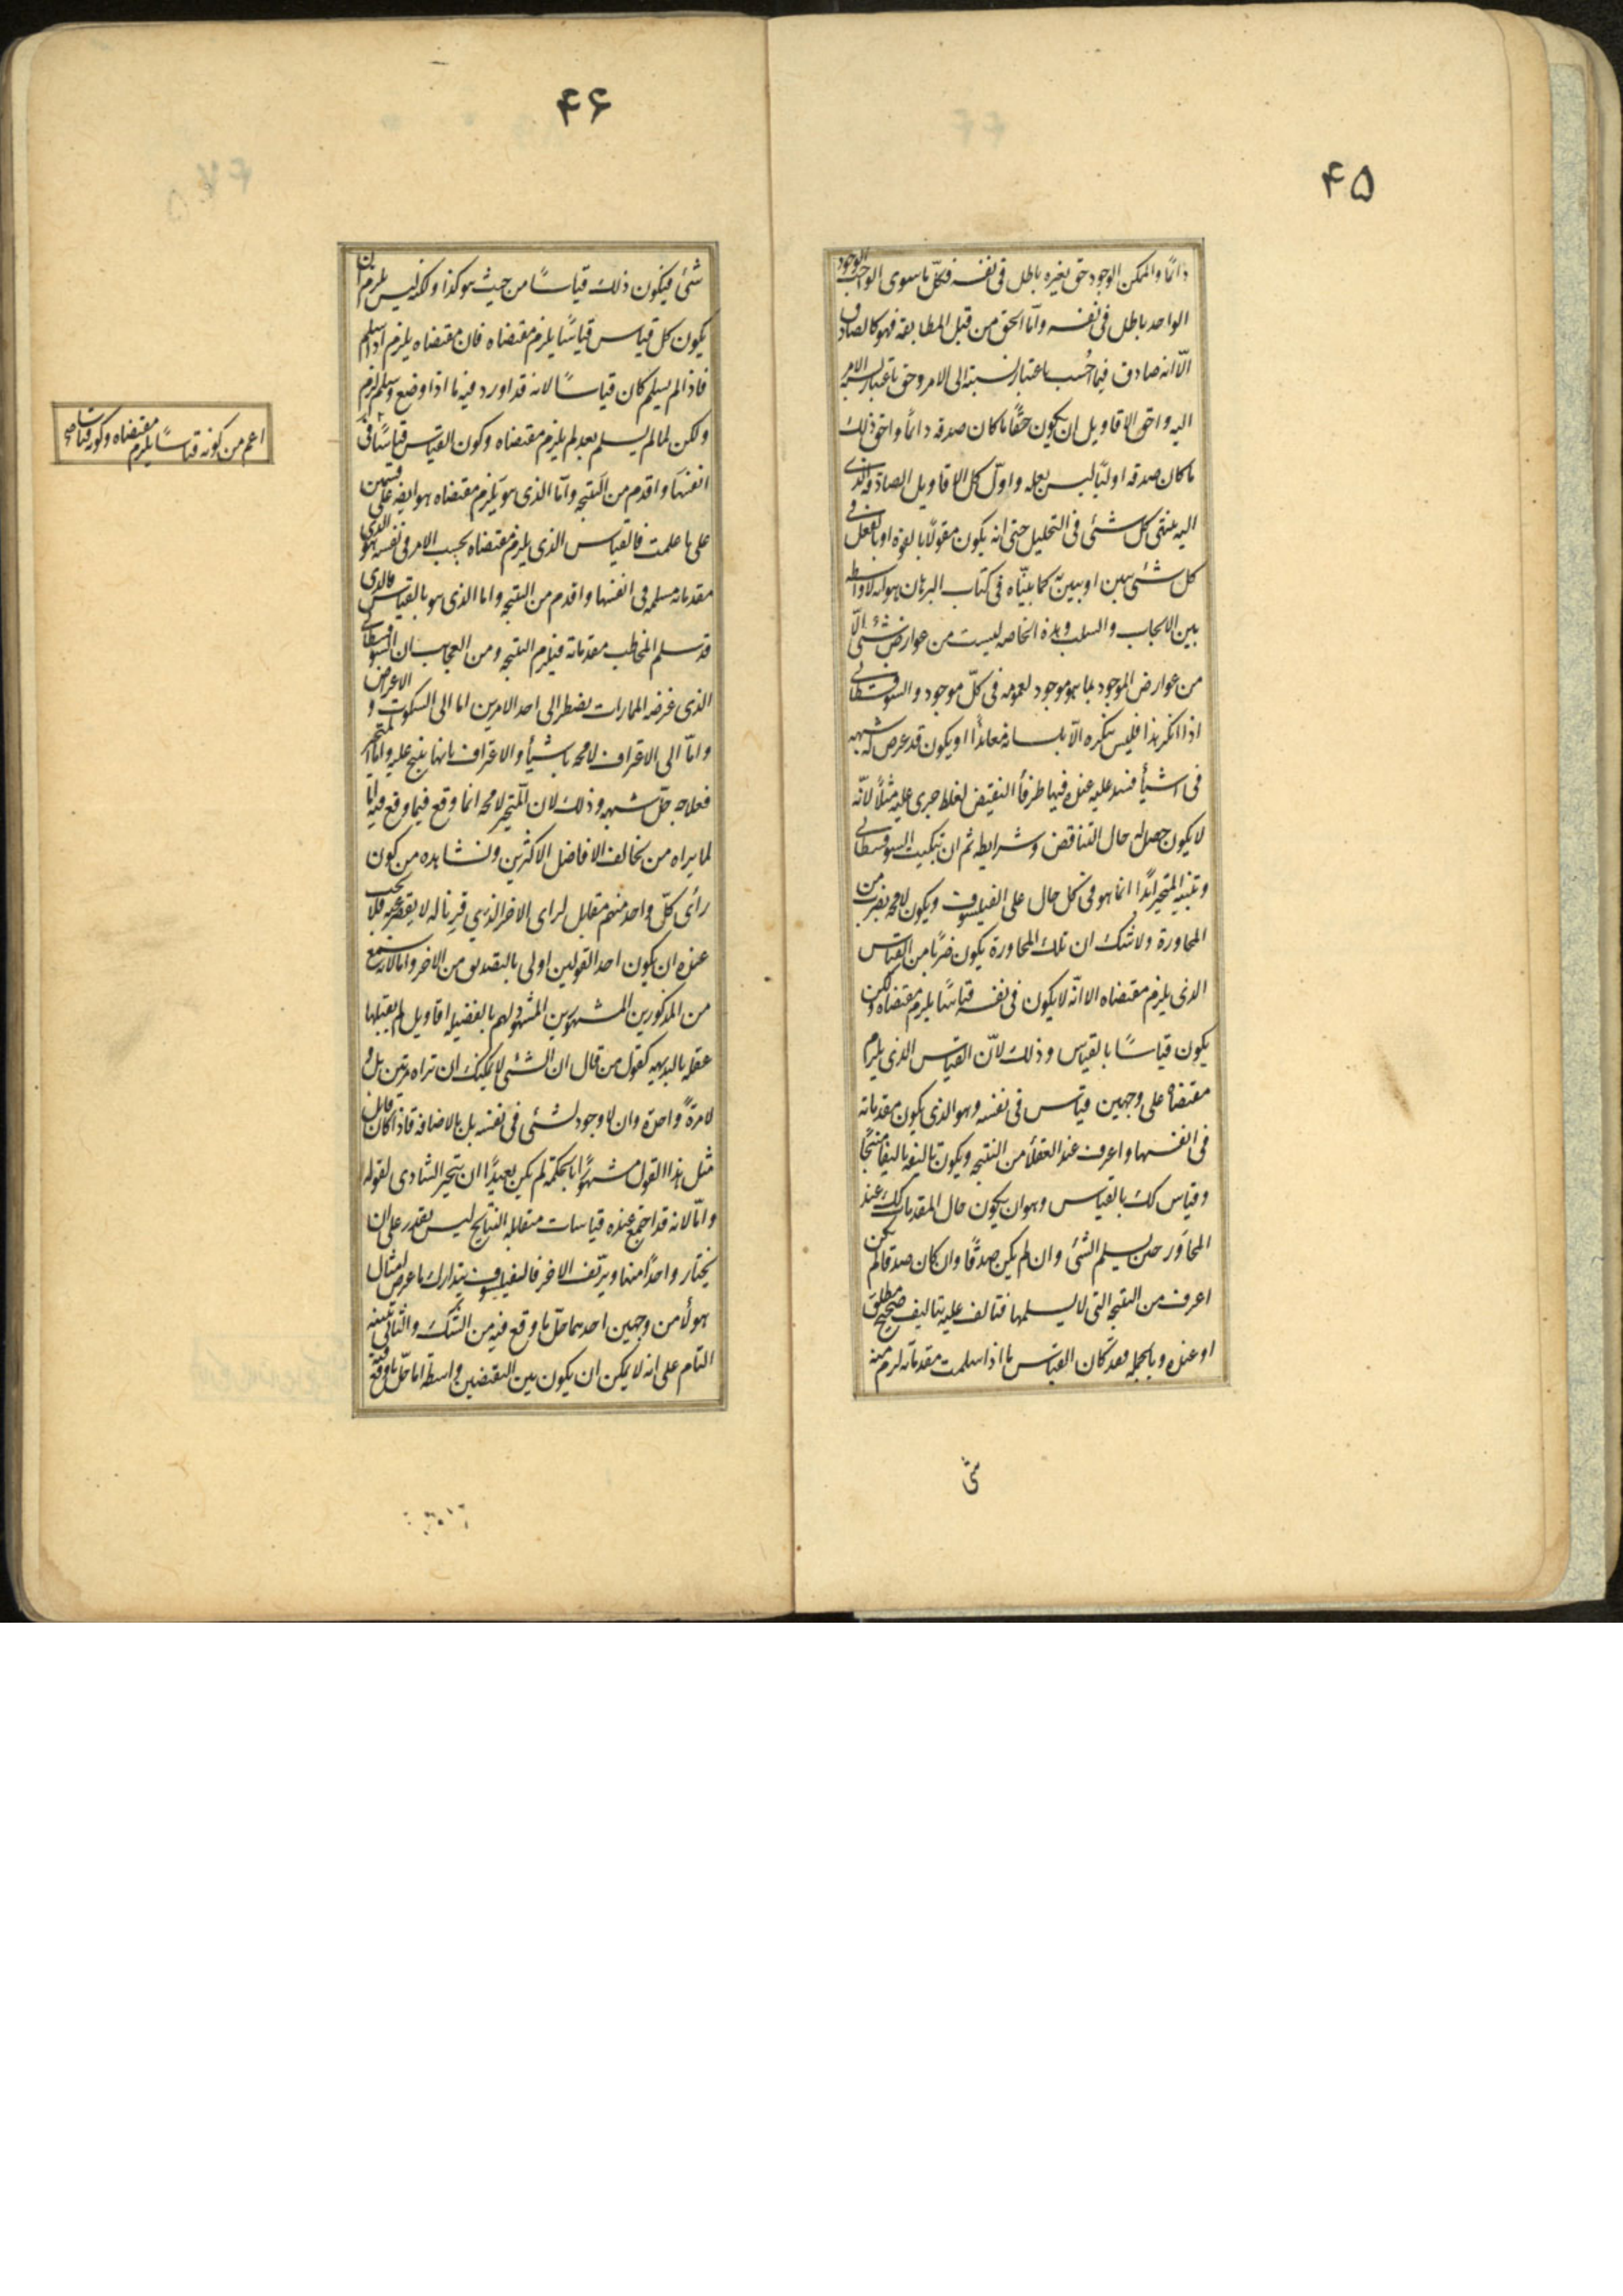 ۴۵
دائما والممكن الوجود حق بغيره باطل فى نفسه فكلّ ما سوى الواجب الوجود
الواحد باطل فى نفسه وامّا الحق من قبل المطابقة فهو كالصادق
الّا انه صادق فيما احُسب باعتبار نسبته الى الامر وحق باعتبار نسبة الامر
اليه واحق الاقاويل ان يكون حقًّا ما كان صدقه دائما واحق ذلك
ما كان صدقه اوليّا ليس بعله واوّل كل الاقاويل الصادقه الذى
اليه ينتهى كل شئ فى التحليل حتى انه يكون مقولًا بالقوة او بالفعل فى
كل شئ يبين او يبين به كما بيّناه فى كتاب البرهان هو انه لا واسطه
بين الايجاب والسلب وهذه الخاصه ليست من عوارض شئ الّا
من عوارض الموجود بما هو موجود لعمومه فى كلّ موجود والسوفسطائى
اذا انكر هذا فليس ينكره الّا بلسانه معاندًا او يكون قد عرض له شبهه
فى اشيأ فسد عليه عنده فيها طرفا النقيض لغلط جرى عليه مثلًا لانّه
لا يكون حصل له حال التناقض وشرايطه ثم ان تبكيت السوفسطائى
وتنبيه المتحير ابدًا انما هو فى كل حال على الفيلسوف ويكون لا محه بضرب من
المحاورة ولا شك ان تلك المحاورة يكون ضربًا من القياس
الذى يلزم مقتضاه الا انّه لا يكون فى نفسه قياسًا يلزم مقتضاه ولكن
يكون قياسًا بالقياس وذلك لانّ القياس الذى يلزم
مقتضاه على وجهين قياس فى نفسه وهو الذى يكون مقدماته
فى انفسها واعرف عند العقلأ من النتيجه ويكون تاليفه تاليفا منتجًا
وقياس كك بالقياس وهو ان يكون حال المقدمات كك عند
المحاوَر حين يسلم الشئ وان لم يكن صدقًا وان كان صدقا لم يكن
اعرف من النتيجه التى لا يسلمها فتالف عليه بتاليف صحيح مطلق
او عنده وبالجمله فقد كان القياس ما اذا سلمت مقدماته لزم منه
شى
۴۶
شئ فيكون ذلك قياسًا من حيث هو كذا ولكنه ليس يلزم ان
يكون كل قياس قياسًا يلزم مقتضاه فان مقتضاه يلزم اذا سلم
فاذا لم يسلم كان قياسًا لانه قد اورد فيه ما اذا وضع وسلم لزم
ولكن لما لم يسلم بعد لم يلزم مقتضاه وكون القياس قياسًا فى
انفسها واقدم من النتيجه وامّا الذى هو يلزم مقتضاه هو ايضه على قسمين
على ما علمت فالقياس الذى يلزم مقتضاه بحسب الامر فى نفسه هو الذى
مقدماته مسلمه فى انفسها واقدم من النتيجه واما الذى هو بالقياس فالذى
قد سلم المخاطب مقدماته فيلزم النتيجه ومن العجايب ان السوفسطائى
الذى غرضه المماراة يضطر الى احد الامرين اما الى السكوت والاعراض
وامّا الى الاعتراف لا محه باشيأ والاعتراف بانها ينتج عليه وامّا المتحير
فعلاجه حلّ شبهه وذلك لان المتحير لا محه انما وقع فيما وقع فيه امّا
لما يراه من تخالف الافاضل الاكثرين ونشاهده من كون
رأى كلّ واحد منهم مقابل لراى الاخر الذى قرينا له لا يقصر عنه فلا يجب
عنده ان يكون احد القولين اولى بالتصديق من الاخر واما لانه سمع
من المذكورين المشهورين المشهود لهم بالفضيله اقاويل لم يقبلها
عقله بالبديهه كقول من قال ان الشئ لا يمكنك ان تراه مرتين بل ولا
لا مرةً واحدة وان لا وجود لشئ فى نفسه بل بالاضافه فاذا كان قايل
مثل هذا القول مشهورًا بالحكمة لم يكن بعيدًا ان يتحير الشادى لقوله
وامّا لانه قد اجتمع عنده قياسات متقابلة النتايج ليس يقدر على ان
يختار واحدًا منها ويزيّف الاخر فالفيلسوف يتدارك ما عرض لامثال
هولأ من وجهين احدهما حلّ ما وقع فيه من الشك والثانى تنبيه
التام على انه لا يمكن ان يكون بين النقيضين واسطة اما حلّ ما وقع فيه
اعم من كونه قياسًا يلزم مقتضاه وكونه قياسا صح